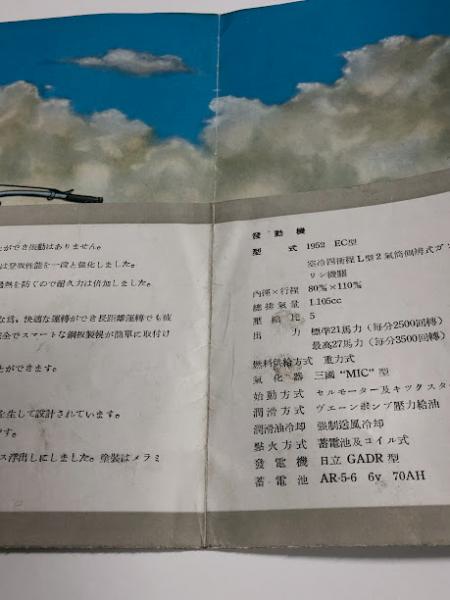 とができ振動はありません。
は登坂性能を一段と強化しました。
過熱を防ぐので耐久力は倍加しました。
な為、快適な運轉ができ長距離運轉でも疲
全でスマートな鋼板製幌が簡單に取付け
とができます。
を生して設計されています。
ス浮出しにしました。塗装はメラミ
發動機
型式 1952 EC型
空冷四衝程L型2氣筒側弁式ガソ
リン機關
内徑×行程 80%×110%
總排氣量 1.105cc
壓縮比 5
出力 標準21馬力(毎分2500回轉)
最高27馬力(毎分3500回轉)
燃料供給方式 重力式
氣化器 三國“MIC”型
始動方式 セルモーター及キツクスター
潤滑方式 ヴエーンポンプ壓力給油
潤滑油冷却 強制送風冷却
點火方式 蓄電池及コイル式
發電機 日立 GADR 型
蓄電池 AR-5-6 6v 70AH